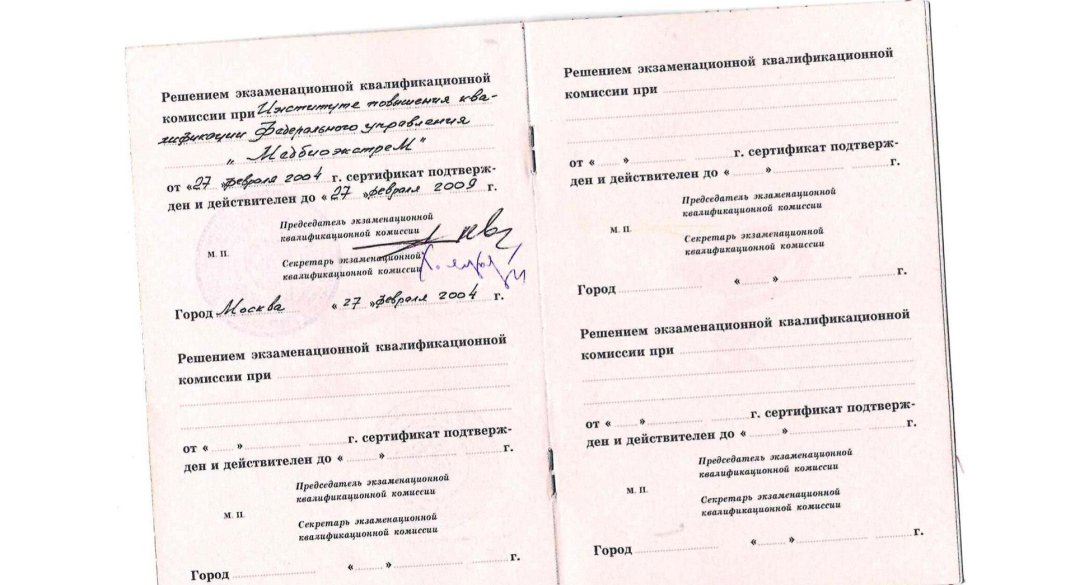 Решением экзаменационной квалификационной
комиссии при Институте повышения ква-
лификации Федерального управления
„Медбиоэкстрем"
от «27 » февраля 2004 г. сертификат подтверж-
ден и действителен до «27 » февраля 2009 г.
Председатель экзаменационной
квалификационной комиссии
М. П.
Секретарь экзаменационной
квалификационной комиссии
Город Москва « 27 » февраля 2004 г.
Решением экзаменационной квалификационной
комиссии при
от « » г. сертификат подтверж-
ден и действителен до « » г.
Председатель экзаменационной
квалификационной комиссии
М. П.
Секретарь экзаменационной
квалификационной комиссии
Город « » г.
Решением экзаменационной квалификационной
комиссии при
от « » г. сертификат подтверж-
ден и действителен до « » г.
Председатель экзаменационной
квалификационной комиссии
М. П.
Секретарь экзаменационной
квалификационной комиссии
Город « » г.
Решением экзаменационной квалификационной
комиссии при
от « » г. сертификат подтверж-
ден и действителен до « » г.
Председатель экзаменационной
квалификационной комиссии
М. П.
Секретарь экзаменационной
квалификационной комиссии
Город « » г.